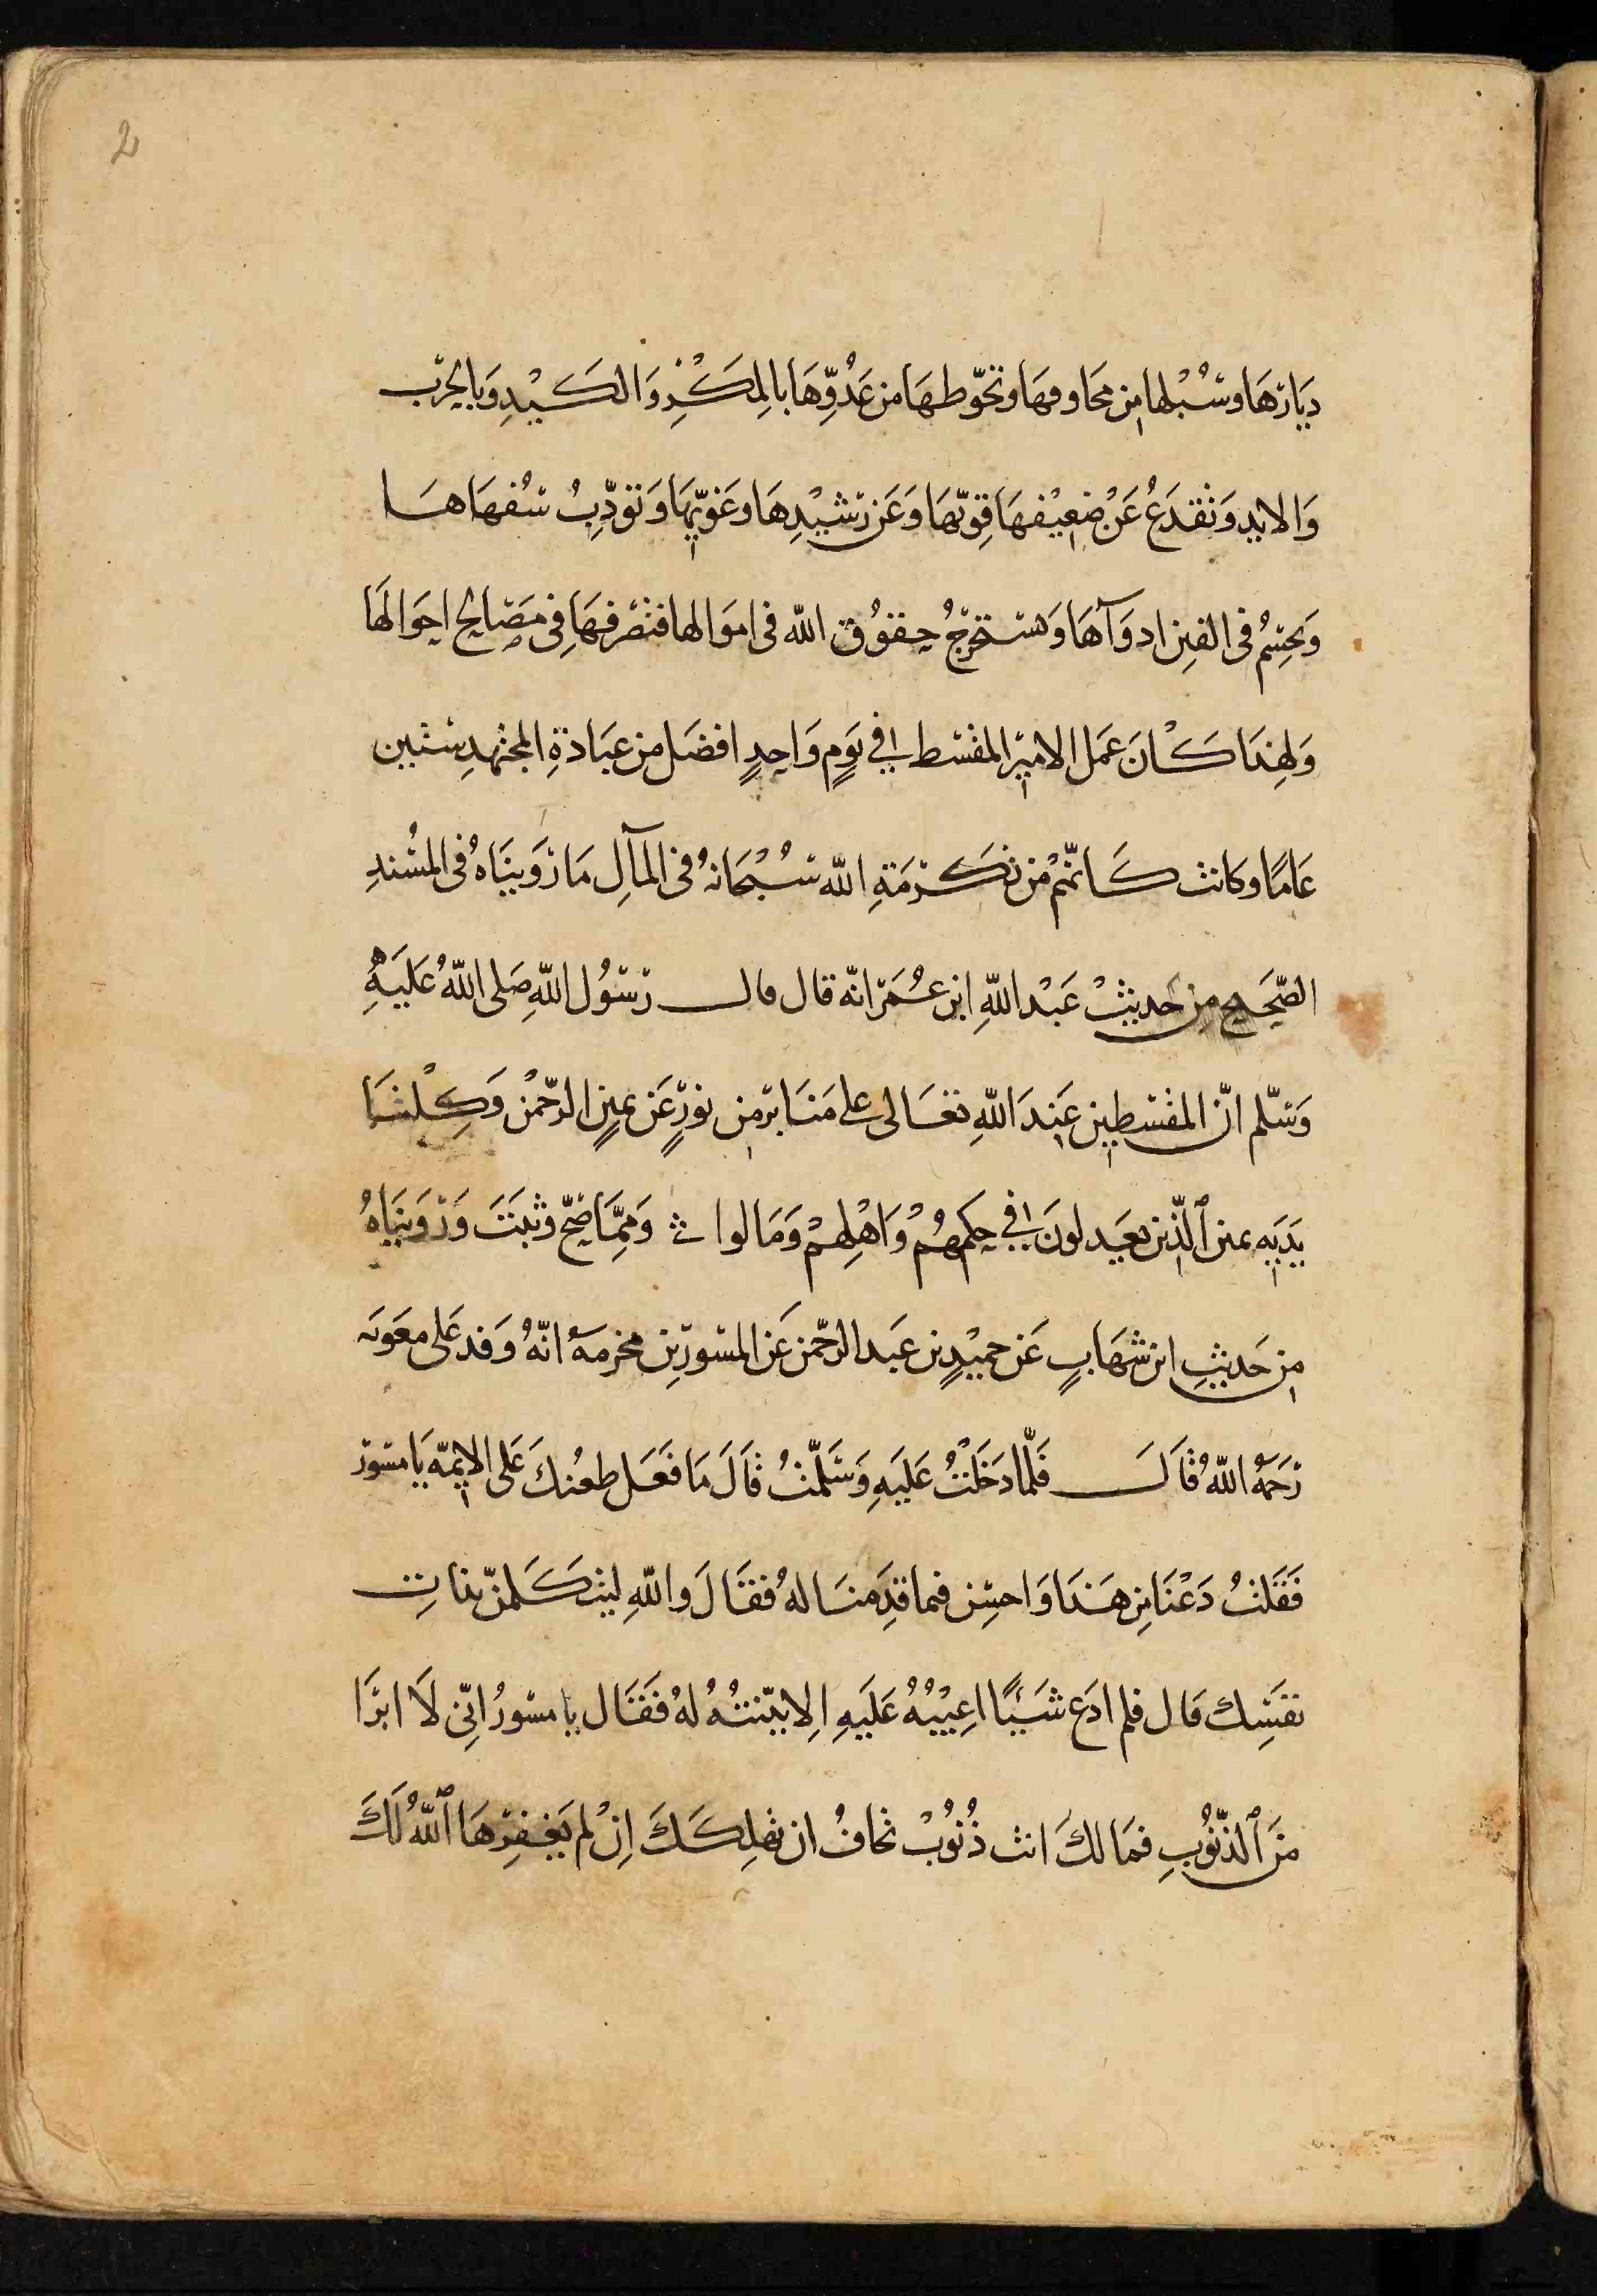 2
دِيَارَهَا وسُبْلها مِن مَخاوفهَا وتحوّطهَا من عَدُوِّهَا بالمِكَرْ وَالكَيْدِ وَبالحرب
وَالايد وَنقدَعُ عَنْ ضعِيْفهَا قِوّيهَا وَعَن رَشيْدِهَا وغَوِيّهَا وَتؤدِّبُ سُفهَاهَا
وَتحسِمُ فى الفتِن ادوَآهَا وَتستخرِجُ حقوُق الله فى اموَالها فتصرفهَا فِى مصَالح احوَالهَا
وَلهِذا كَانَ عَمل الامير المقسط فِي يَومٍ وَاحِدٍ افضَل من عبَادةِ المجتهدِ ستين
عَامًا وكانت كَانّهُمْ من تكَرْمَةِ الله سُبْحَانهُ فى المآلِ مَا رَوَينَاهُ فى المسُندِ
الصّحَيح مِن حَديثْ عَبْد اللّهِ ابن عُمَرَ انّه قال قال رسَوُل اللّهِ صَلى اللّهُ عَليَهِ
وَسّلم انّ المقسطِين عِندَ اللّهِ تعَالى على مَنَابر مِن نورٍ عَن يمينِ الرحّمن وَكِلْتَا
يدَيَهِ يمين ٱلّذين يعَدلونَ في حِكمهُمْ وَاهْلِهمْ وَمَا لوا وَمِمَّا صَحّ وثبَتَ وَرَوَينَاهُ
مِن حَديثِ ابن شهَابٍ عَن حميْدٍ بن عَبد الرحّمن عَن المسَورِ بن مخرمهَ انّهُ وَفد عَلى معَويه
رَحَمهُ اللّهُ قالَ فَلّمَا دَخَلتُ عَليَهِ وَسَلّمتُ قالَ مَا فَعَل طعْنكَ عَلى الايمّة يَا مسَورُ
فَقَلتُ دَعْنَا مِن هَذا وَاحسِن فيما قدِمَنا لهُ فقالَ واللّهِ لتكَلمنّ بذاتِ
نفسِك قال فلم ادَع شَيَئًا اعِيْبُهُ عَلَيهِ اِلا بيّنتُهُ لهُ فَقال يا مسَورُ انّى لَا ابرَا
مَن ٱلذّنوُبِ فمَا لكَ انت ذُنوُبْ تخافُ ان تهلِكَكَ اِنْ لم يغَفِرهَا ٱللّهُ لَكَ